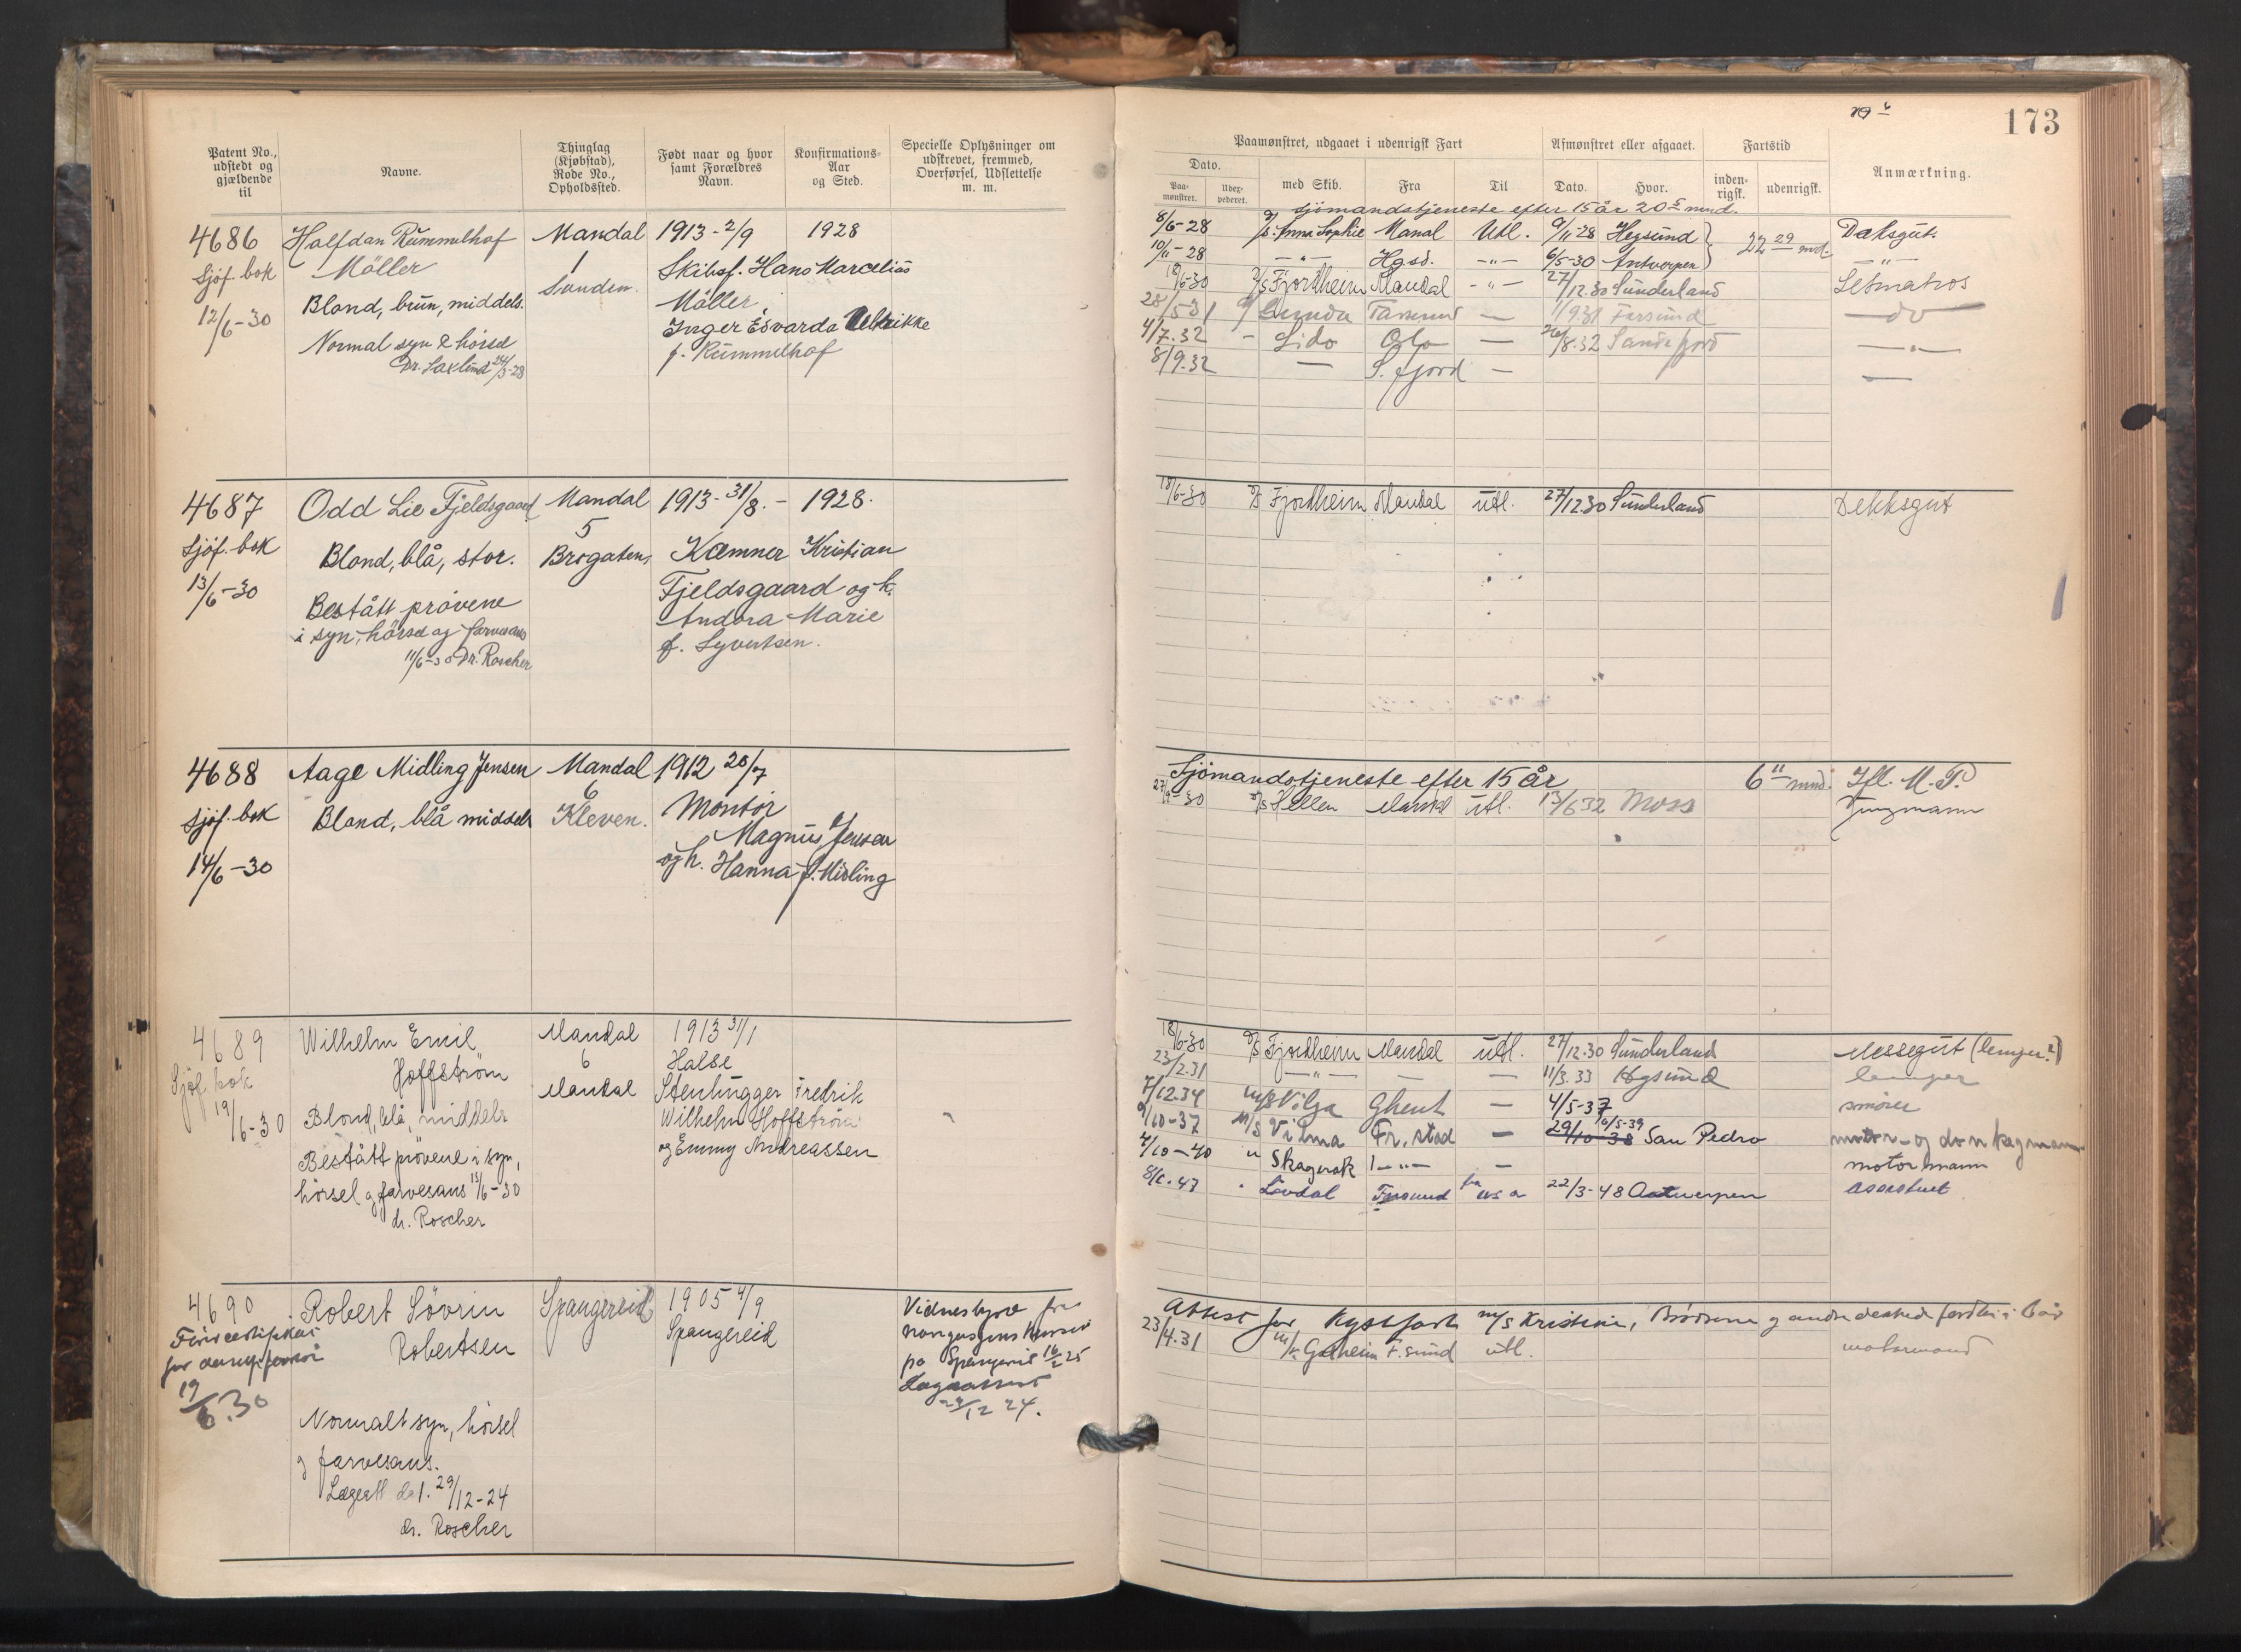 173
Patent No., udstedt og gjældende til
Navne.
Thinglag (Kjøbstad), Rode No., Opholdssted.
Født naar og hvor samt Forældres Navn.
Konfirmations-Aar og Sted.
Specielle Oplysninger om udskrevet, fremmed, Overførsel, Udslettelse m. m.
Paamønstret, udgaaet i udenrigsk Fart
Afmønstret eller afgaaet.
Fartstid
Anmærkning.
Dato.
Paa-mønstret.
Udex-pederet.
med Skib.
Fra
Til
Dato.
Hvor.
inden-rigsk.
udenrigsk.
4686 Halfdan Rummelhof Mandal 1913-2/9 1928
Sjøf. bok Möller 1 Skibsf. Hans Marcelius
Sanden.
12/6-30 Blond, brun, middels. Möller,
Inger Edvarda
Normal syn & hörsel f. Rummelhof
Dr. Saxlund 24/3-28
sjömandstjeneste efter 15 år 20 mnd.
8/6-28 Anna Sophie Manal Utl. 9/11-28 Hegsund 22 29 md. Daksgut.
10/11-28 — " — Hgsd. — " — 6/5-30 Antverpen — " —
18/6-30 D/S Fjordheim Mandal — " — 27/12.30 Sunderland Letmatros
28/5 31 — 1/9.31 Farsund — do —
4/7.32 - Lido Oslo — 26/8.32 Sandefjord — " —
8/9.32 — S. fjord — —
4687 Odd Lie Fjeldsgaard Mandal 1913-31/8.- 1928.
5
Sjöf. bok Blond, blå, stor. Brogaten, Kæmner Kristian
13/6-30 Fjeldsgaard og h.
Bestått prövene Andora Marie
i syn, hörsel og farvesans f. Syvertsen.
11/6-30 Dr. Roscher
18/6-30 D/S Fjordheim Mandal utl. 27/12.30 Sunderland Dekksgut
4688 Aage Midling Jensen Mandal 1912 20/7
6
Sjöf. bok Blond, blå middels Kleven. Montör
Magnus Jensen
14/6-30 og h. Hanna f. Midling
Sjömandstjeneste efter 15 år 6 11 mnd. Ifl. M.P.
27/9-30 D/S Hellen Mandal utl. 13/6 32 Moss Jungmann
4689 Wilhelm Emil Mandal 1913 31/1
Sjöf. bok Hoffström 6 Halse
Mandal Stenhugger Fredrik
19/6-30 Blond, blå, middels Wilhelm Hoffström
og Emmy Andreassen
Bestått prövene i syn,
hörsel og farvesans 13/6-30
dr. Roscher
18/6-30 D/S Fjordheim Mandal utl. 27/12.30 Sunderland Messegut (lemper?)
23/2.31 — " — — — 11/3.33 Hogsund lemper
7/12.34 m/s Vilja Ghent — 4/5-37 smörer
9/10-37 M/S Vilma Fr.stad — 29/10-38 10/5-39 San Pedro motor- og donkeymann
4/10-40 " Skagerak — " — — motormann
8/6.47 Lövdal Farsund fra usa 22/3-48 Antwerpen assistent
4690 Robert Sövrin Spangereid 1905 4/9
Robertsen Spangereid
19/6.30
Vidnesbyrd fra
på Spangereid 16/2 25
Lægeattest
29/12 24.
Normalt syn, hörsel
og farvesans.
Lægeatt dat. 29/12-24
dr. Roscher
Attest for kystfart m/s Kristine, Brödrene og andre
23/4.31 F.sund utl. motormand